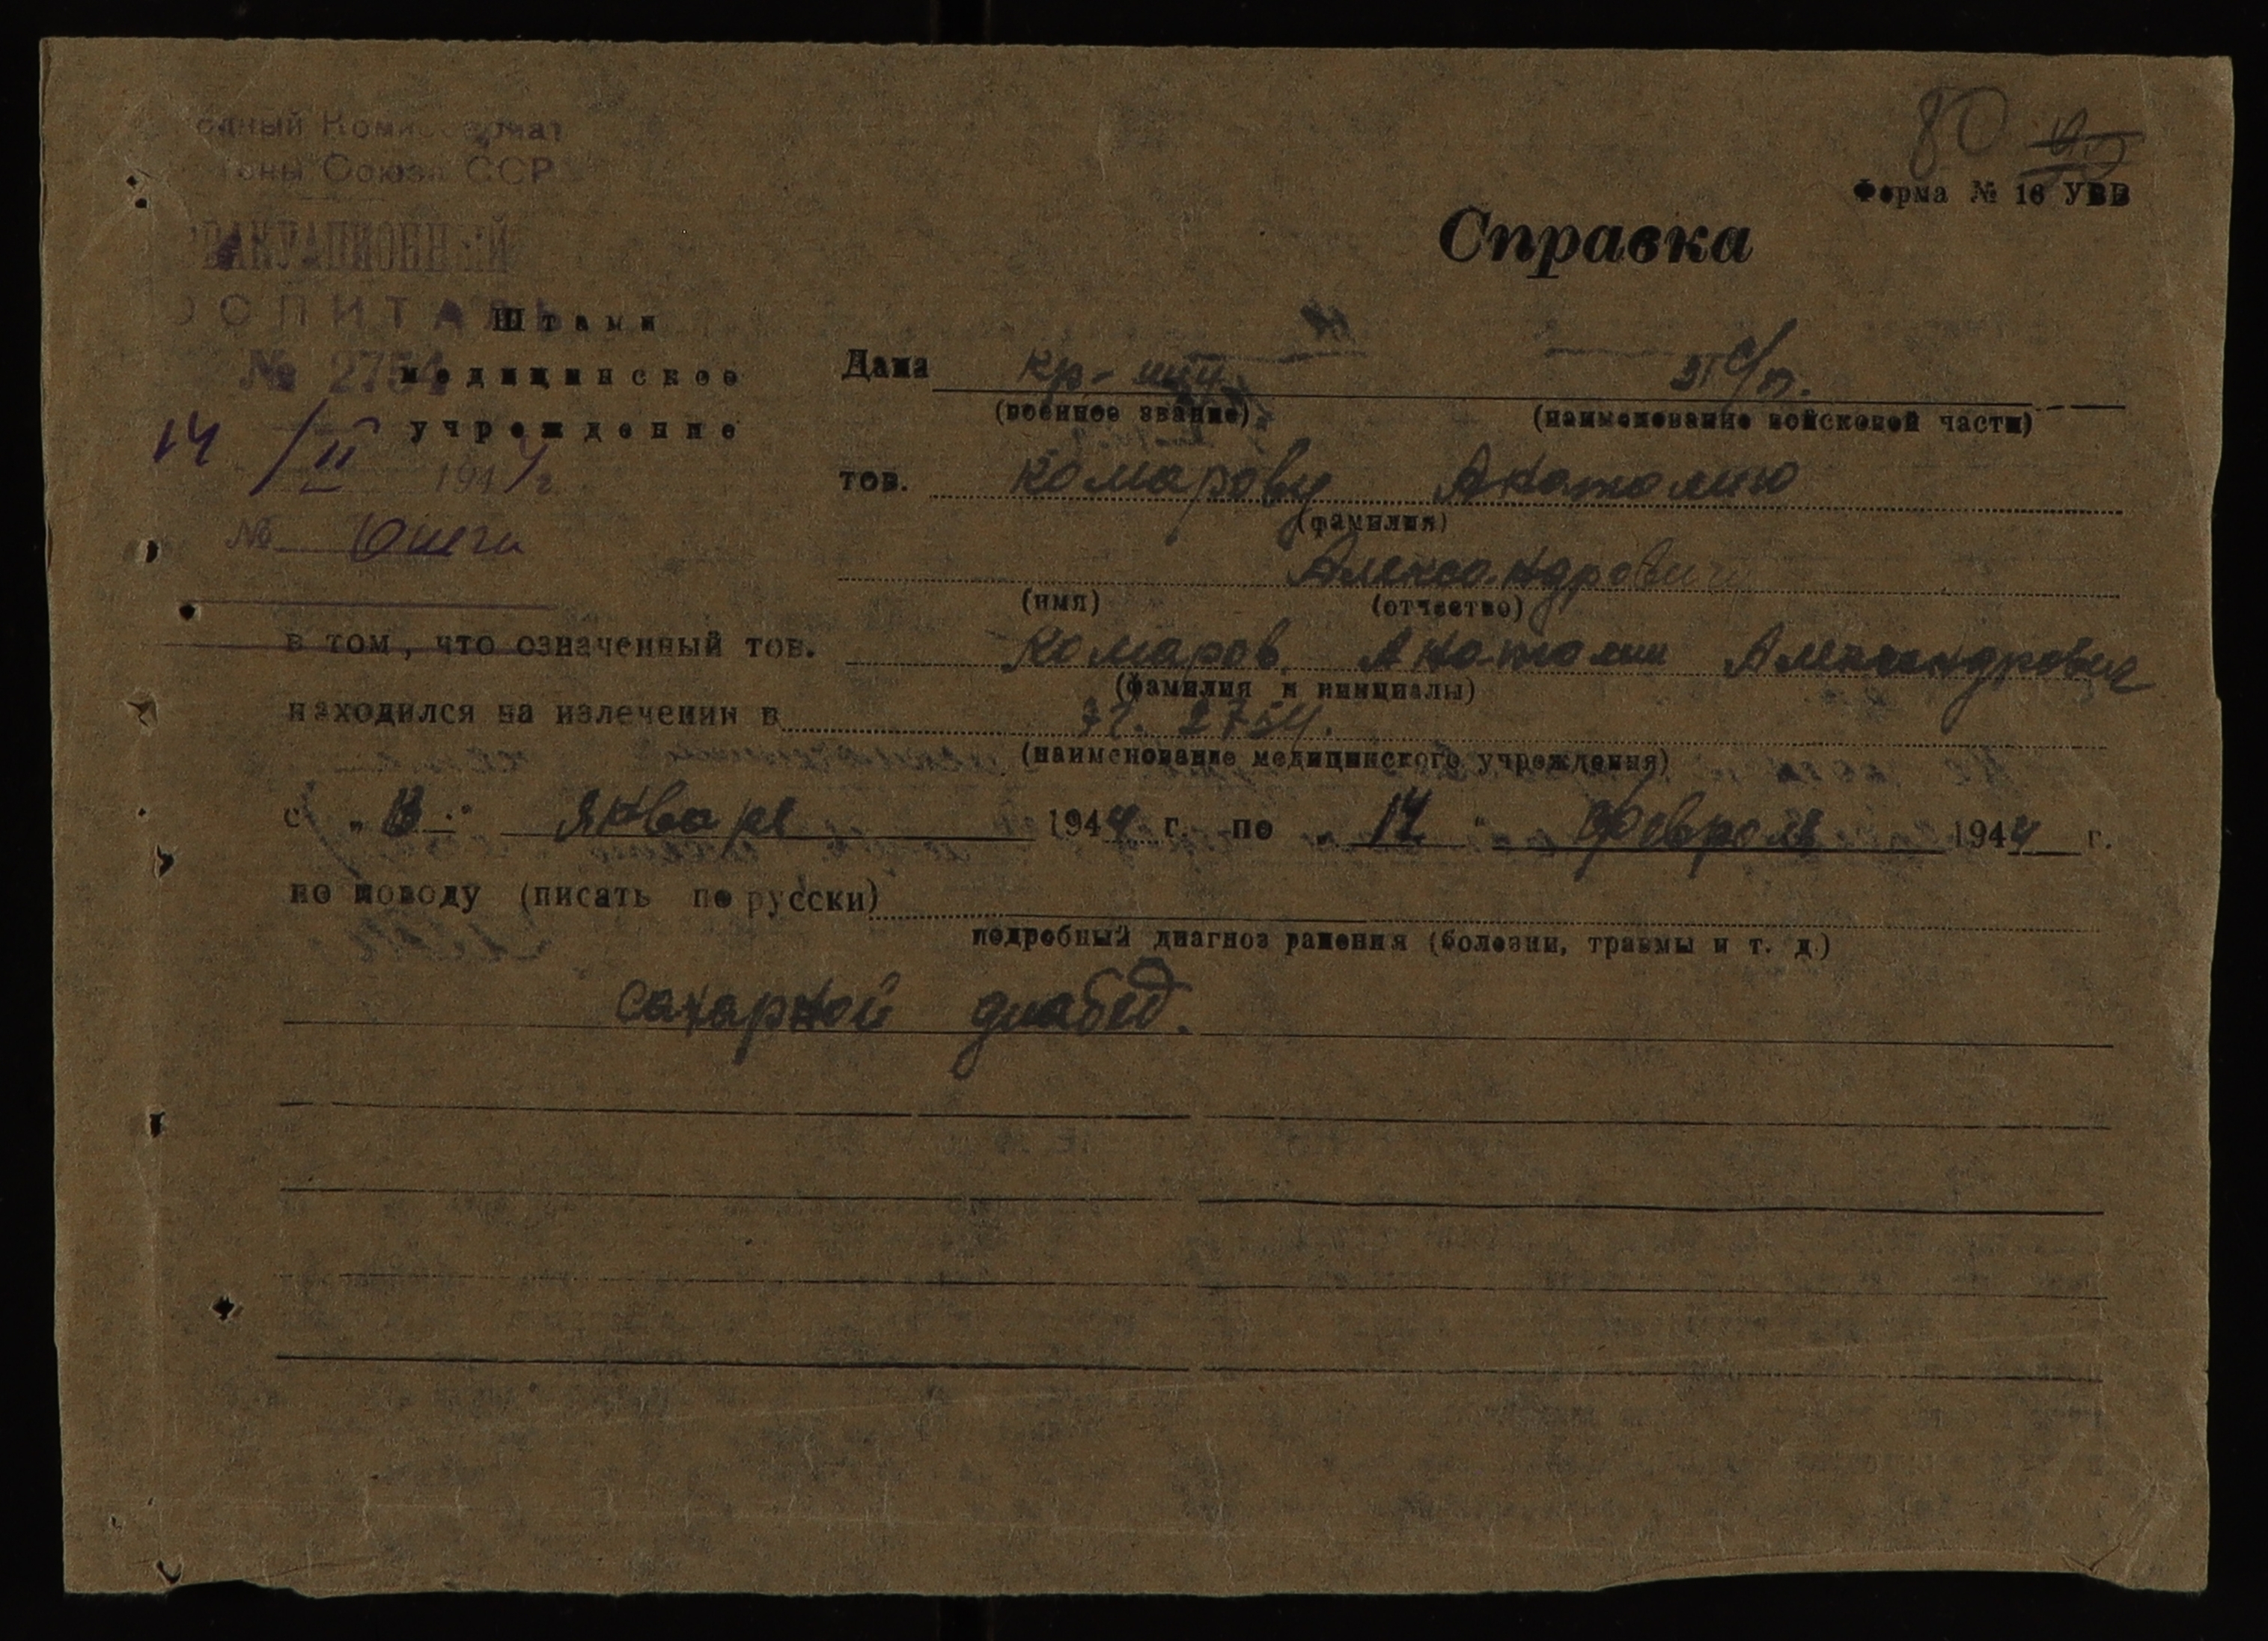 80
Форма № 16 УВВ
Справка
одный Комиссариат
роны Союза ССР
ЭВАКУАЦИОННЫЙ
ГОСПИТАЛЬ
№ 2754
Штамп
медицинское
учреждение
14/II 1944 г.
№
Дана кр-
(военное звание) (наименование войсковой части)
тов. Комарову Анатолию
(фамилия)
Александровичу
(имя) (отчество)
в том, что означенный тов. Комаров Анатолий Александрович
(фамилия и инициалы)
находился на излечении в 2754.
(наименование медицинского учреждения)
с „13" января 1944 г. по „14" февраля 1944 г.
по поводу (писать по русски)
подробный диагноз ранения (болезни, травмы и т. д.)
сахарной диабед.